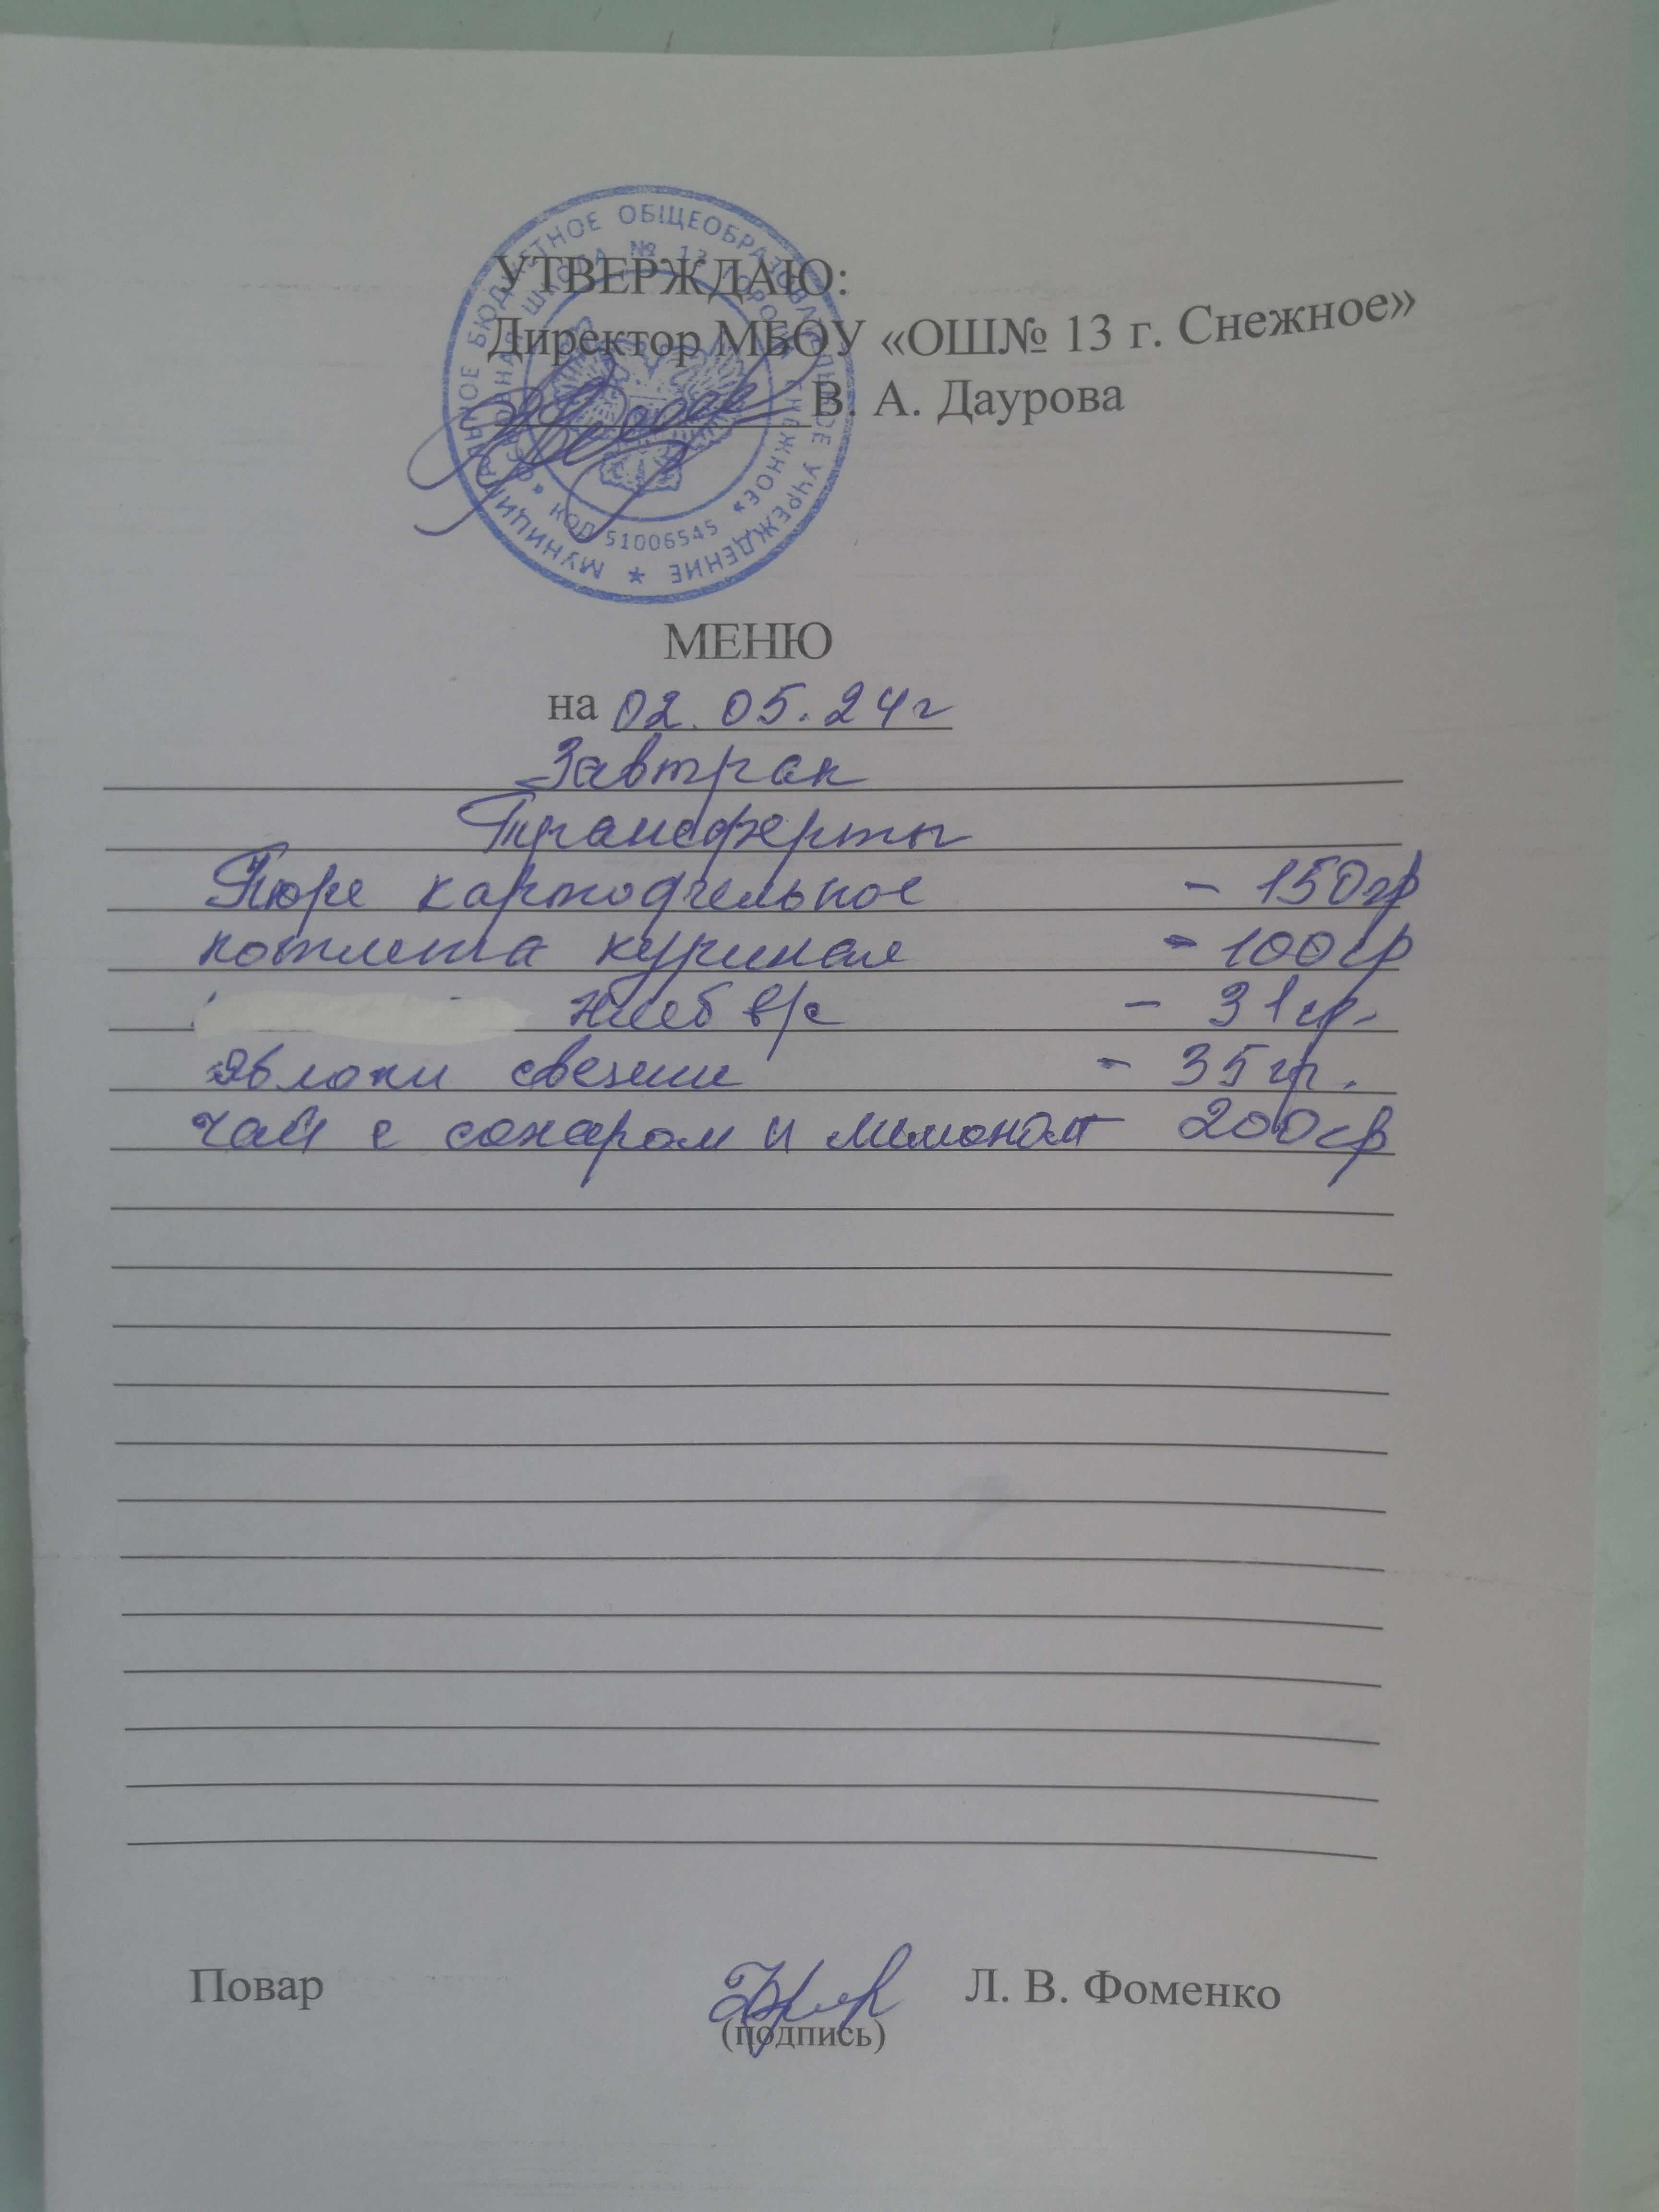 МУНИЦИПАЛЬНОЕ БЮДЖЕТНОЕ ОБЩЕОБРАЗОВАТЕЛЬНОЕ УЧРЕЖДЕНИЕ
ШКОЛА № 13 ГОРОДА СНЕЖНОЕ» КОД 51006545
УТВЕРЖДАЮ:
Директор МБОУ «ОШ№ 13 г. Снежное»
В. А. Даурова
МЕНЮ
на 02.05.24г
Завтрак
Трансферты
Пюре картофельное - 150гр
котлета куриная - 100гр
хлеб в/с - 31гр.
яблоки свежие - 35гр.
чай с сахаром и лимоном - 200гр
Повар Л. В. Фоменко
(подпись)